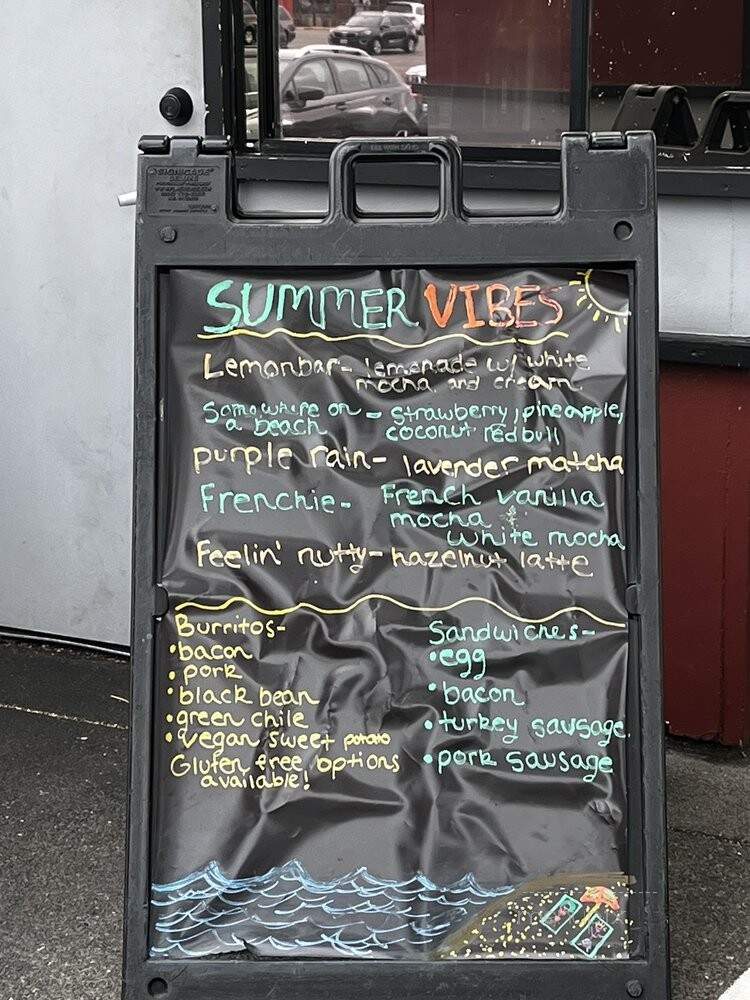 SIGNICADE
DELUXE
SUMMER VIBES
Lemonbar- lemonade w/ white
mocha and cream
Somewhere on - strawberry, pineapple,
a beach coconut redbull
purple rain- lavender matcha
Frenchie- French vanilla
mocha +
white mocha
Feelin' nutty- hazelnut latte
Burritos-
•bacon
•pork
•black bean
•green chile
•vegan sweet potato
Gluten free options
available!
Sandwiches-
•egg
•bacon
•turkey sausage
•pork sausage